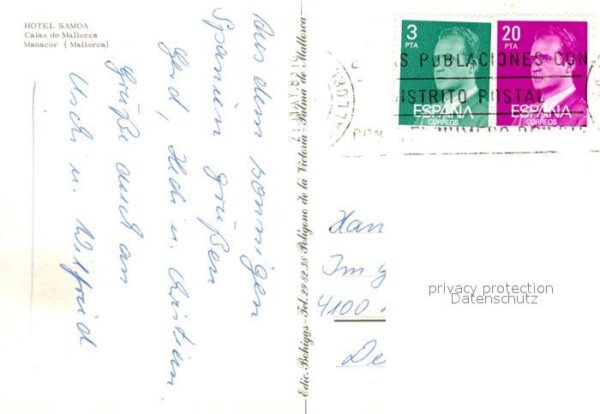 HOTEL SAMOA
Calas de Mallorca
Manacor (Mallorca)
Aus dem sonnigen
Spanien grüßen
Gerd, Hedi u. Christian.
Grüße auch an
Uschi u. Wilfried
Edic. Bohigas - Tel. 29 82 38 Polígono de la Victoria - Palma de Mallorca
3
PTA
ESPAÑA
CORREOS
20
PTA
ESPAÑA
CORREOS
S POBLACIONES CON
DISTRITO POSTAL
Han
Im G
4100
De
privacy protection
Datenschutz